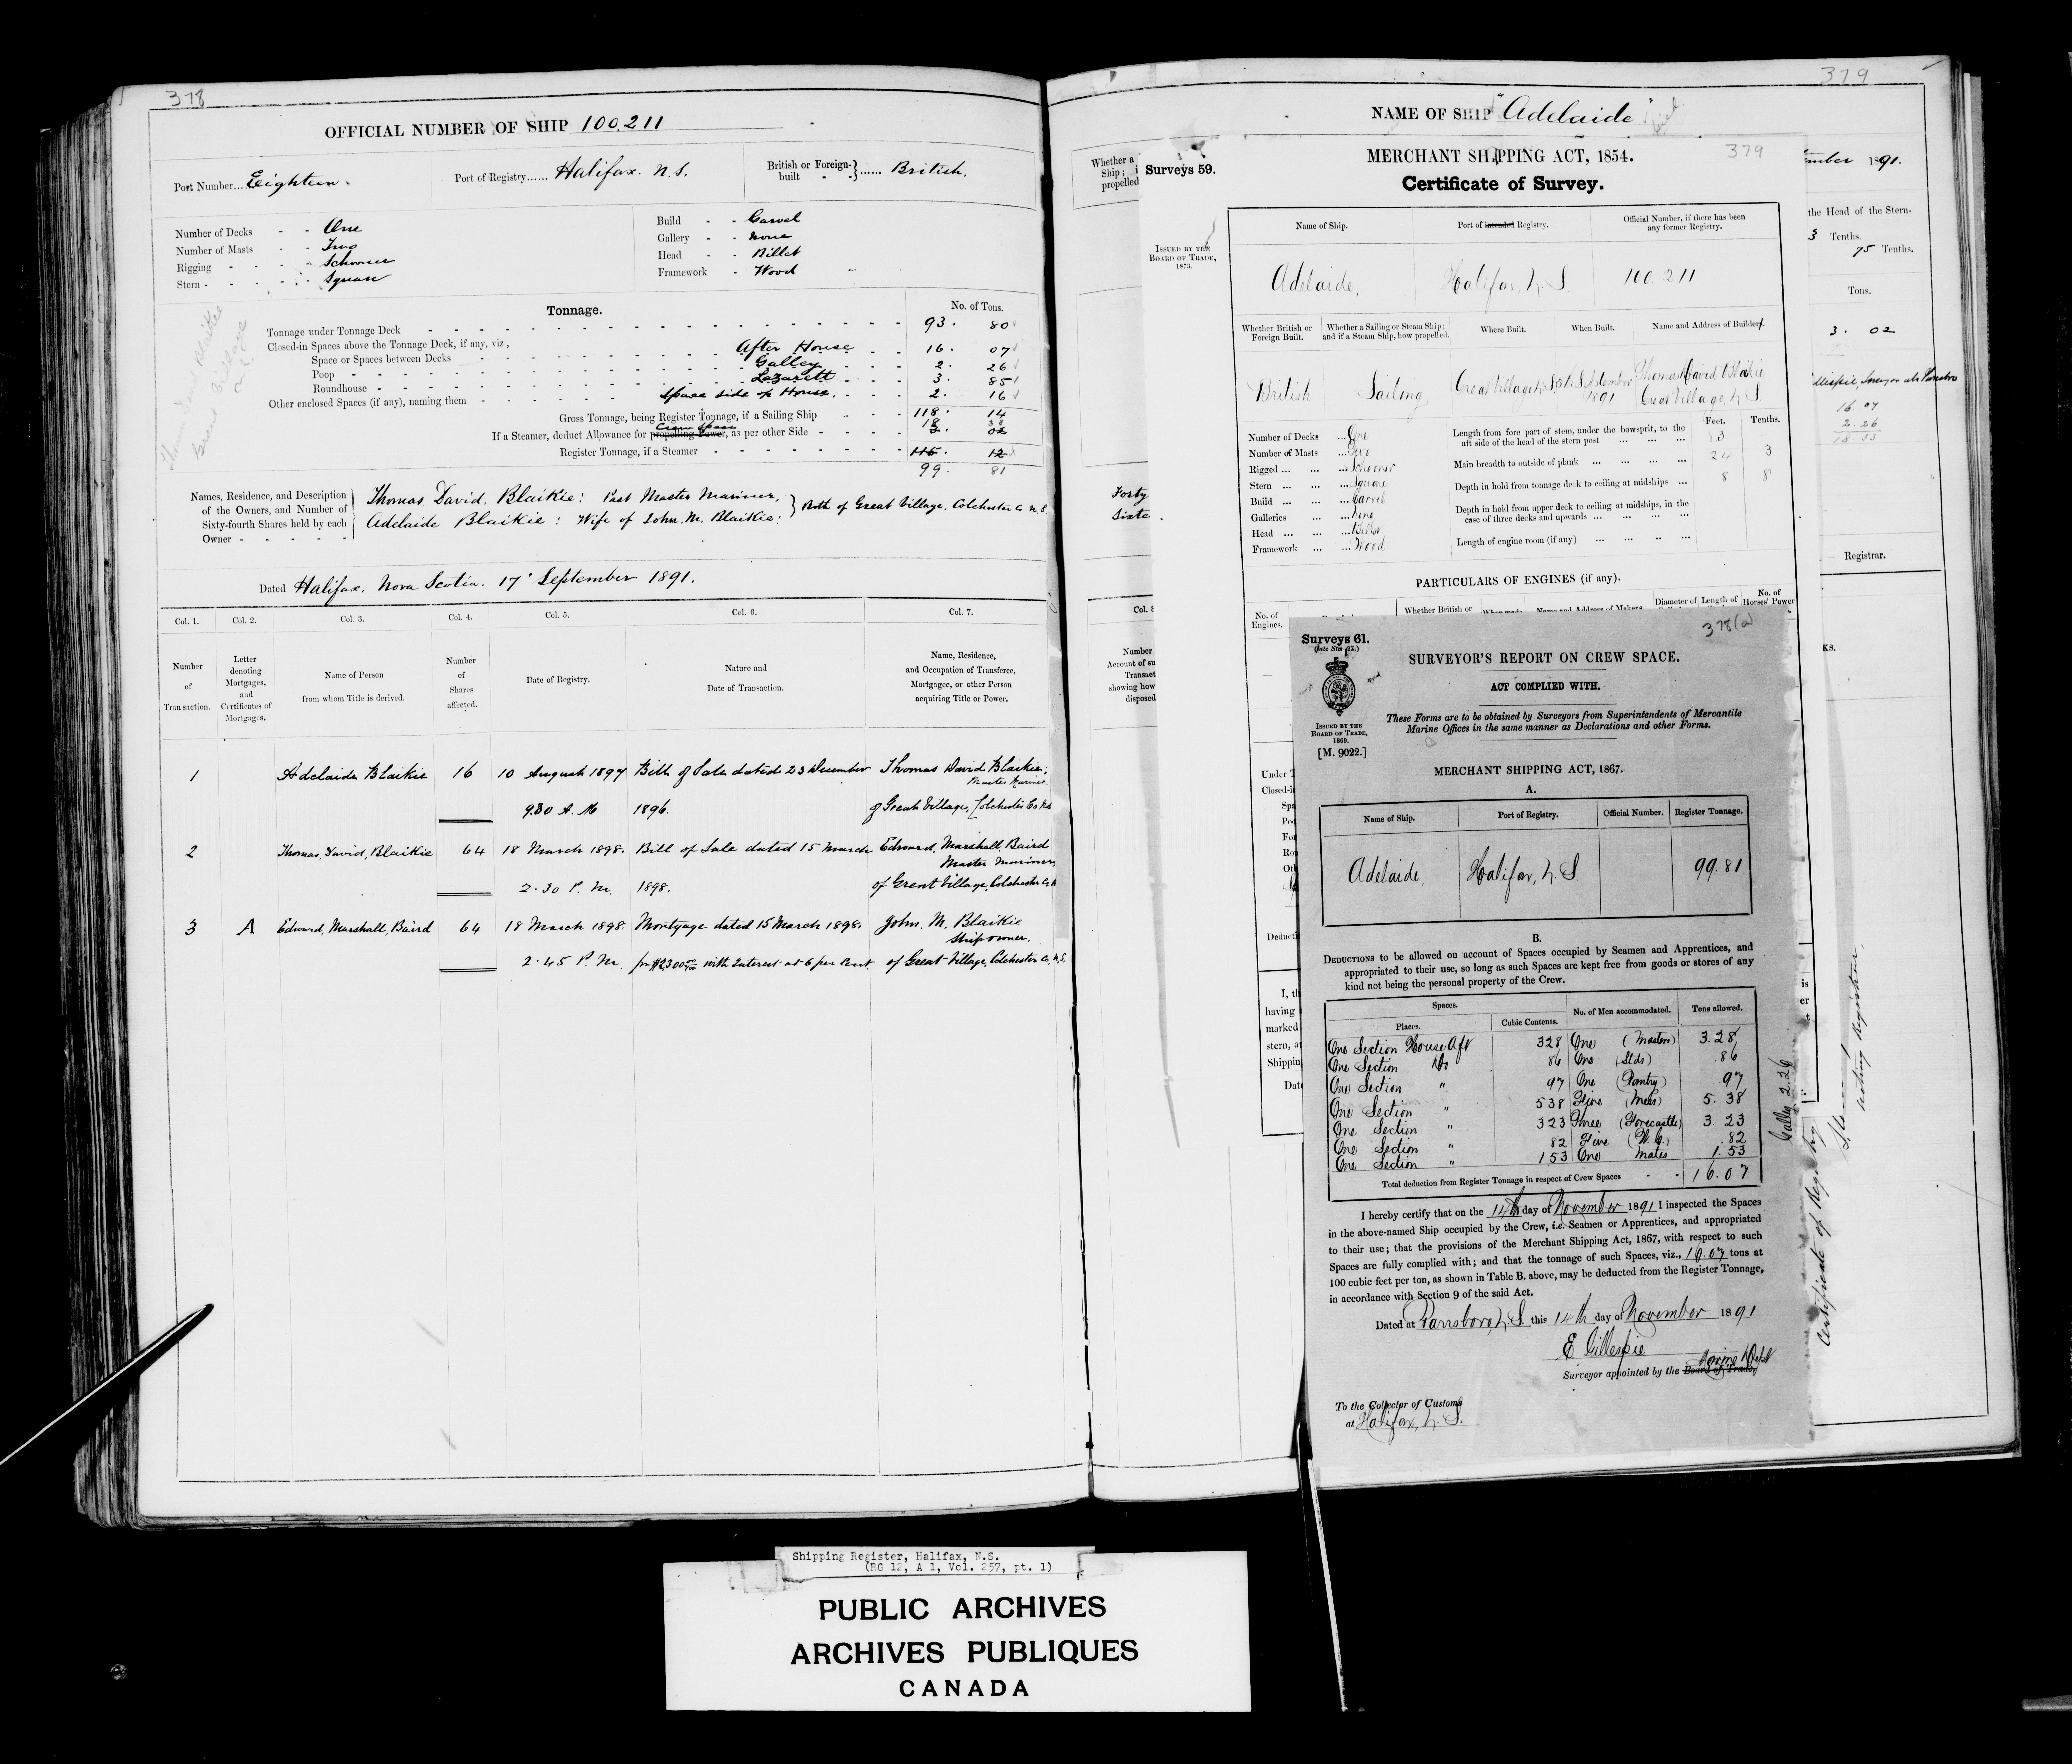 378
OFFICIAL NUMBER OF SHIP 100.211
Port Number... Eighteen.
Port of Registry...... Halifax. N.S.
British or Foreign-built - - } ...... British.
Number of Decks - - One
Number of Masts - - Two
Rigging - - - - Schooner
Stern - - - - - Square
Build - - Carvel
Gallery - - None
Head - - Billet
Framework - Wood
Thomas David Blaikie
Great Village
N.S.
Tonnage.
No. of Tons.
Tonnage under Tonnage Deck 93. 80
Closed-in Spaces above the Tonnage Deck, if any, viz,
After House 16. 07
Space or Spaces between Decks
Galley 2. 26
Poop
Lazarett 3. 85
Roundhouse
Other enclosed Spaces (if any), naming them Space side of House. 2. 16
Gross Tonnage, being Register Tonnage, if a Sailing Ship 118. 14
Crew Space 18 33
If a Steamer, deduct Allowance for propelling Power, as per other Side 3. 02
Register Tonnage, if a Steamer 115. 12
99. 81
Names, Residence, and Description of the Owners, and Number of Sixty-fourth Shares held by each Owner
Thomas David. Blaikie: Past Master Mariner,
Adelaide Blaikie: Wife of John. M. Blaikie: } Both of Great Village, Colchester Co N.S.
Dated Halifax. Nova Scotia. 17' September 1891.
Col. 1. Col. 2. Col. 3. Col. 4. Col. 5. Col. 6. Col. 7.
Number of Transaction.
Letter denoting Mortgages, and Certificates of Mortgages.
Name of Person from whom Title is derived.
Number of Shares affected.
Date of Registry.
Nature and Date of Transaction.
Name, Residence, and Occupation of Transferee, Mortgagee, or other Person acquiring Title or Power.
1 Adelaide Blaikie 16 10 August 1897 Bill of Sale dated 23 December Thomas David Blaikie,
Master Mariner
9.30 A. M 1896. of Great Village, Colchester Co N.S
2 Thomas, David, Blaikie 64 18 March 1898. Bill of Sale dated 15 March Edward, Marshall, Baird
Master Mariner,
2.30 P. M. 1898. of Great Village, Colchester Co,
3 A Edward, Marshall, Baird 64 18 March 1898. Mortgage dated 15 March 1898. John. M. Blaikie
Shipowner,
2.45 P. M. for $2,300 with Interest at 6 per Cent. of Great Village, Colchester Co, N.S.
379
NAME OF SHIP "Adelaide"
Whether a
Ship; i
propelled
Forty
Sixte
Col. 8
Number
Account of su
Transact
showing how
disposed
Surveys 59.
ISSUED BY THE
BOARD OF TRADE,
1873.
379
MERCHANT SHIPPING ACT, 1854.
Certificate of Survey.
Name of Ship. Port of intended Registry. Official Number, if there has been any former Registry.
Adelaide, Halifax, N. S. 100.211
Whether British or Foreign Built. Whether a Sailing or Steam Ship; and if a Steam Ship, how propelled. Where Built. When Built. Name and Address of Builder.
British Sailing Great Village, N.S. 5th September 1891 Thomas David Blaikie
Great Village, N. S.
Number of Decks ... One
Number of Masts ... Two
Rigged ... Schooner
Stern ... Square
Build ... Carvel
Galleries ... None
Head ... Billet
Framework ... Wood
Feet. Tenths.
Length from fore part of stem, under the bowsprit, to the aft side of the head of the stern post ... 83
Main breadth to outside of plank ... 24 3
Depth in hold from tonnage deck to ceiling at midships ... 8 8
Depth in hold from upper deck to ceiling at midships, in the case of three decks and upwards ...
Length of engine room (if any) ...
PARTICULARS OF ENGINES (if any).
No. of Engines.
Whether British or
When made
Name and Address of Makers
Diameter of
Length of
No. of Horses' Power
Under T
Closed-in
Spa
Poo
For
Rou
Oth
Deducti
I, th
having
marked
stern, an
Shipping
Date
mber 1891.
the Head of the Stern-
3 Tenths.
75 Tenths.
Tons.
3. 02
Gillespie, Surveyor at Parrsboro
16 07
2.26
18.33
Registrar.
KS.
Surveys 61.
(late Stm 23.)
ISSUED BY THE
BOARD OF TRADE,
1869.
[M. 9022.]
378(a)
SURVEYOR'S REPORT ON CREW SPACE.
ACT COMPLIED WITH.
These Forms are to be obtained by Surveyors from Superintendents of Mercantile
Marine Offices in the same manner as Declarations and other Forms.
MERCHANT SHIPPING ACT, 1867.
A.
Name of Ship. Port of Registry. Official Number. Register Tonnage.
Adelaide, Halifax, N. S. 99.81
B.
DEDUCTIONS to be allowed on account of Spaces occupied by Seamen and Apprentices, and
appropriated to their use, so long as such Spaces are kept free from goods or stores of any
kind not being the personal property of the Crew.
Spaces.
Places. Cubic Contents. No. of Men accommodated. Tons allowed.
One Section House Aft 328 One (Masters) 3.28
One Section Do 86 One (Stds) .86
One Section " 97 One (Pantry) .97
One Section " 538 Five (Mess) 5.38
One Section " 323 Three (Forecastle) 3.23
One Section " 82 Five (W.C.) .82
One Section " 153 One Mates 1.53
Total deduction from Register Tonnage in respect of Crew Spaces - - 16.07
Galley 2.26
I hereby certify that on the 14th day of November 1891 I inspected the Spaces
in the above-named Ship occupied by the Crew, i.e. Seamen or Apprentices, and appropriated
to their use; that the provisions of the Merchant Shipping Act, 1867, with respect to such
Spaces are fully complied with; and that the tonnage of such Spaces, viz., 16.07 tons at
100 cubic feet per ton, as shown in Table B. above, may be deducted from the Register Tonnage,
in accordance with Section 9 of the said Act.
Dated at Parrsboro, N.S. this 14th day of November 1891
E. Gillespie
Surveyor appointed by the Board of Trade,
To the Collector of Customs
at Halifax, N. S.
Certificate of Registry
Acting Registrar.
Shipping Register, Halifax, N.S.
(RG 12, A 1, Vol. 257, pt. 1)
PUBLIC ARCHIVES
ARCHIVES PUBLIQUES
CANADA